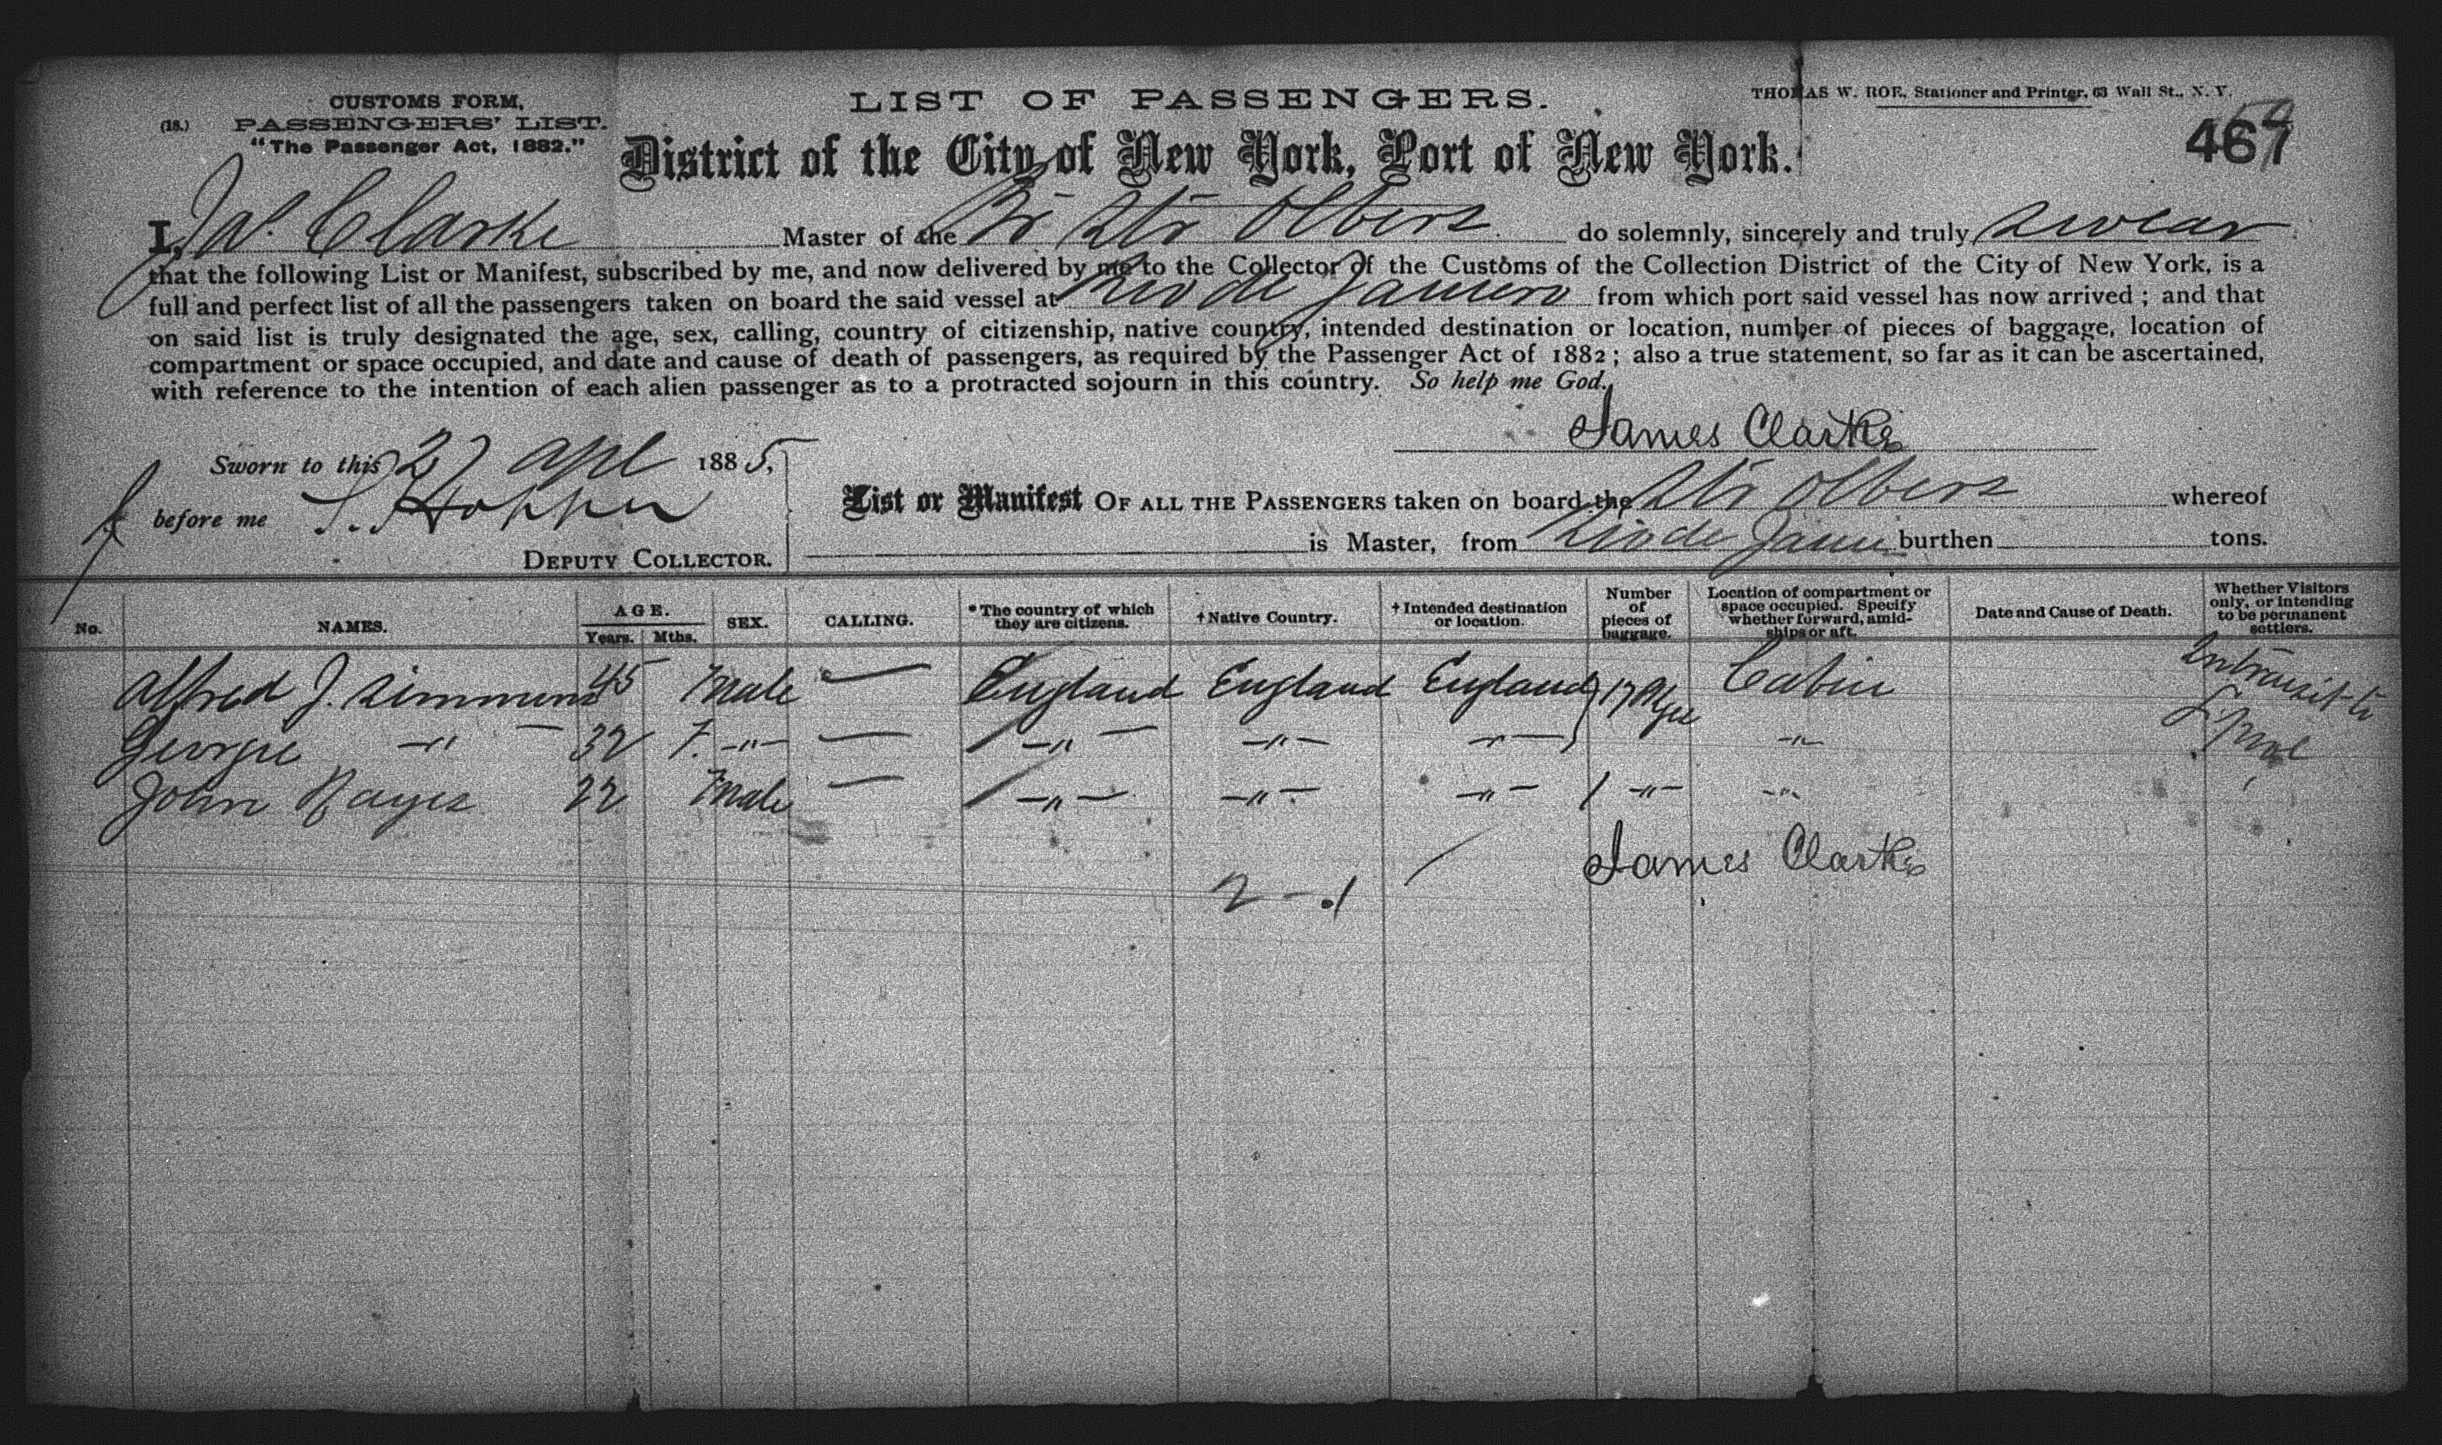 CUSTOMS FORM,
(18.) PASSENGERS' LIST.
"The Passenger Act, 1882."
LIST OF PASSENGERS.
THOMAS W. ROE, Stationer and Printer, 63 Wall St., N. Y.
District of the City of New York, Port of New York.
467
I, Jas. Clarke Master of the Br Str Olbers do solemnly, sincerely and truly swear
that the following List or Manifest, subscribed by me, and now delivered by me to the Collector of the Customs of the Collection District of the City of New York, is a
full and perfect list of all the passengers taken on board the said vessel at Rio de Janeiro from which port said vessel has now arrived; and that
on said list is truly designated the age, sex, calling, country of citizenship, native country, intended destination or location, number of pieces of baggage, location of
compartment or space occupied, and date and cause of death of passengers, as required by the Passenger Act of 1882; also a true statement, so far as it can be ascertained,
with reference to the intention of each alien passenger as to a protracted sojourn in this country. So help me God.
James Clarke
Sworn to this 27 Apl 1885,
before me S. Hopper
DEPUTY COLLECTOR.
List or Manifest OF ALL THE PASSENGERS taken on board the Str Olbers whereof
is Master, from Rio de Janei burthen tons.
No. NAMES. AGE. Years. Mths. SEX. CALLING. *The country of which they are citizens. †Native Country. †Intended destination or location. Number of pieces of baggage. Location of compartment or space occupied. Specify whether forward, amidships or aft. Date and Cause of Death. Whether Visitors only, or intending to be permanent settlers.
Alfred J. Simmons 45 Male — England England England 17 Cabin Intransit to
Georgie —"— 32 F. —"— — —"— —"— —"— —"— L'pool
John Hayes 22 Male — —"— —"— —"— 1 —"— —"—
James Clarke
2 - 1